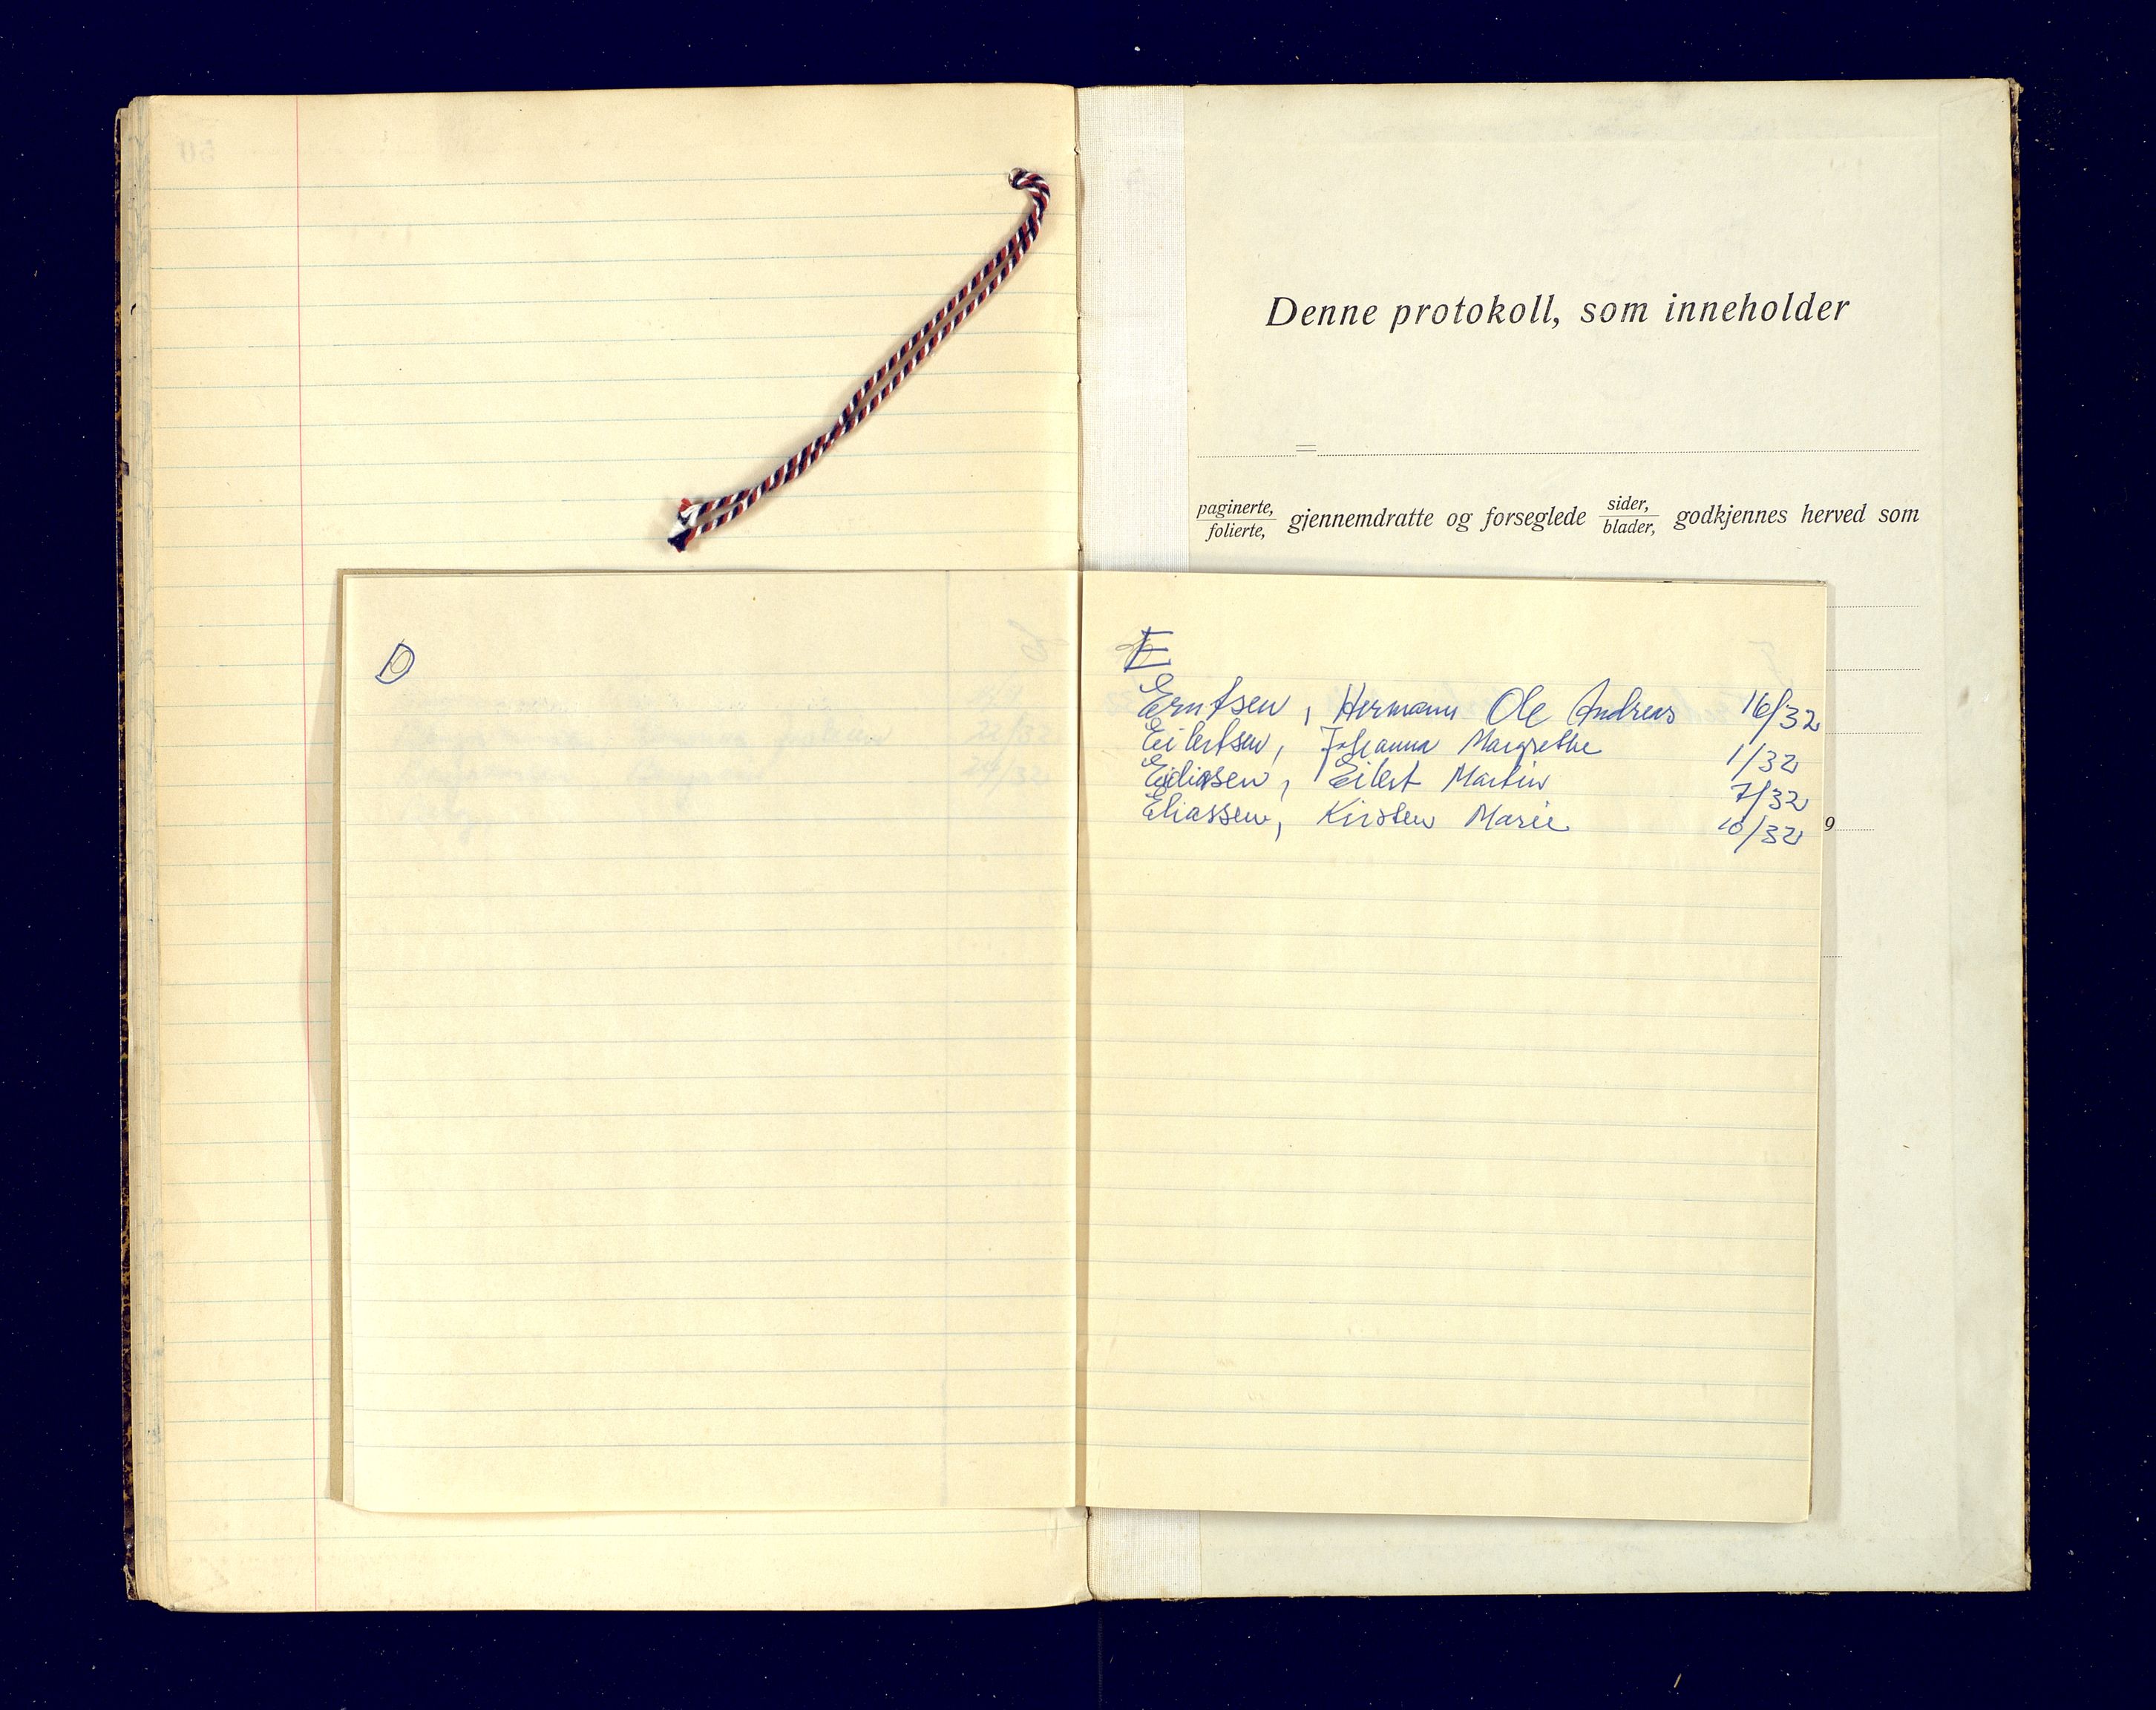 Denne protokoll, som inneholder
=
paginerte, folierte, gjennemdratte og forseglede sider, blader, godkjennes herved som
9
D
E
Erntsen, Hermann Ole Andreas 16/32
Eilertsen, Johanna Margrethe 1/32
Eilert Martin 7/32
Eliassen, Kirsten Marie 10/32